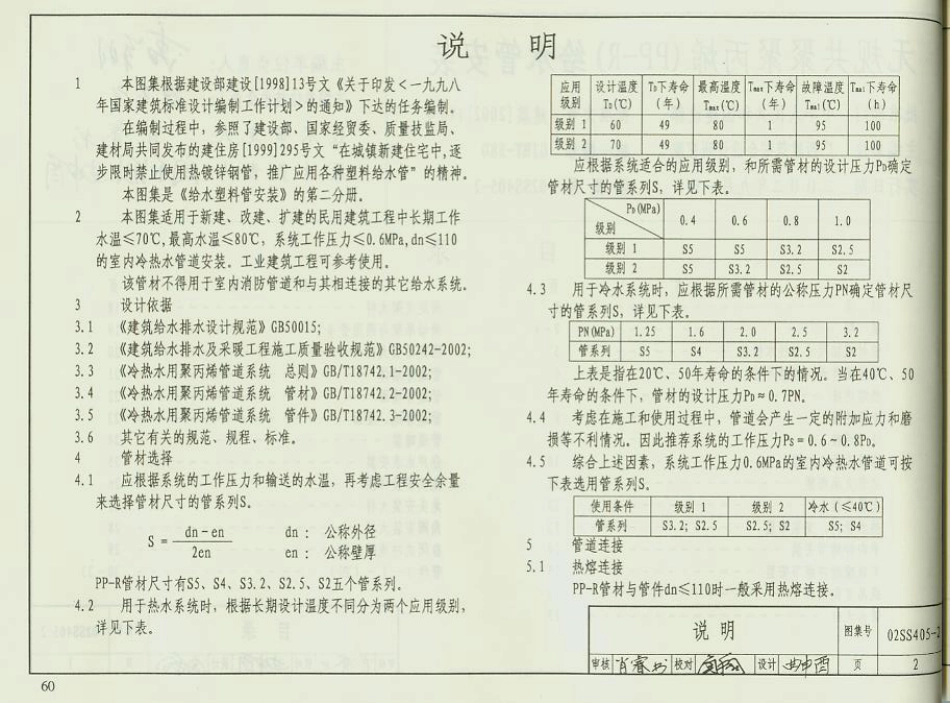 说 明
1 本图集根据建设部建设[1998]13号文《关于印发<一九九八
年国家建筑标准设计编制工作计划>的通知》下达的任务编制。
在编制过程中，参照了建设部、国家经贸委、质量技监局、
建材局共同发布的建住房[1999]295号文“在城镇新建住宅中，逐
步限时禁止使用热镀锌钢管，推广应用各种塑料给水管”的精神。
本图集是《给水塑料管安装》的第二分册。
2 本图集适用于新建、改建、扩建的民用建筑工程中长期工作
水温≤70℃,最高水温≤80℃，系统工作压力≤0.6MPa,dn≤110
的室内冷热水管道安装。工业建筑工程可参考使用。
该管材不得用于室内消防管道和与其相连接的其它给水系统。
3 设计依据
3.1 《建筑给水排水设计规范》GB50015;
3.2 《建筑给水排水及采暖工程施工质量验收规范》GB50242-2002;
3.3 《冷热水用聚丙烯管道系统 总则》GB/T18742.1-2002;
3.4 《冷热水用聚丙烯管道系统 管材》GB/T18742.2-2002;
3.5 《冷热水用聚丙烯管道系统 管件》GB/T18742.3-2002;
3.6 其它有关的规范、规程、标准。
4 管材选择
4.1 应根据系统的工作压力和输送的水温，再考虑工程安全余量
来选择管材尺寸的管系列S。
S = dn-en / 2en
dn： 公称外径
en： 公称壁厚
PP-R管材尺寸有S5、S4、S3.2、S2.5、S2五个管系列。
4.2 用于热水系统时，根据长期设计温度不同分为两个应用级别，
详见下表。
应用级别 设计温度TD(℃) TD下寿命(年) 最高温度Tmax(℃) Tmax下寿命(年) 故障温度Tmal(℃) Tmal下寿命(h)
级别 1 60 49 80 1 95 100
级别 2 70 49 80 1 95 100
应根据系统适合的应用级别，和所需管材的设计压力PD确定
管材尺寸的管系列S，详见下表。
级别 PD(MPa) 0.4 0.6 0.8 1.0
级别 1 S5 S5 S3.2 S2.5
级别 2 S5 S3.2 S2.5 S2
4.3 用于冷水系统时，应根据所需管材的公称压力PN确定管材尺
寸的管系列S，详见下表。
PN(MPa) 1.25 1.6 2.0 2.5 3.2
管系列 S5 S4 S3.2 S2.5 S2
上表是指在20℃、50年寿命的条件下的情况。当在40℃、50
年寿命的条件下，管材的设计压力PD≈0.7PN。
4.4 考虑在施工和使用过程中，管道会产生一定的附加应力和磨
损等不利情况。因此推荐系统的工作压力Ps=0.6~0.8PD。
4.5 综合上述因素，系统工作压力0.6MPa的室内冷热水管道可按
下表选用管系列S。
使用条件 级别 1 级别 2 冷水（≤40℃）
管系列 S3.2; S2.5 S2.5; S2 S5; S4
5 管道连接
5.1 热熔连接
PP-R管材与管件dn≤110时一般采用热熔连接。
说 明 图集号 02SS405-2
审核 校对 设计 页 2
60